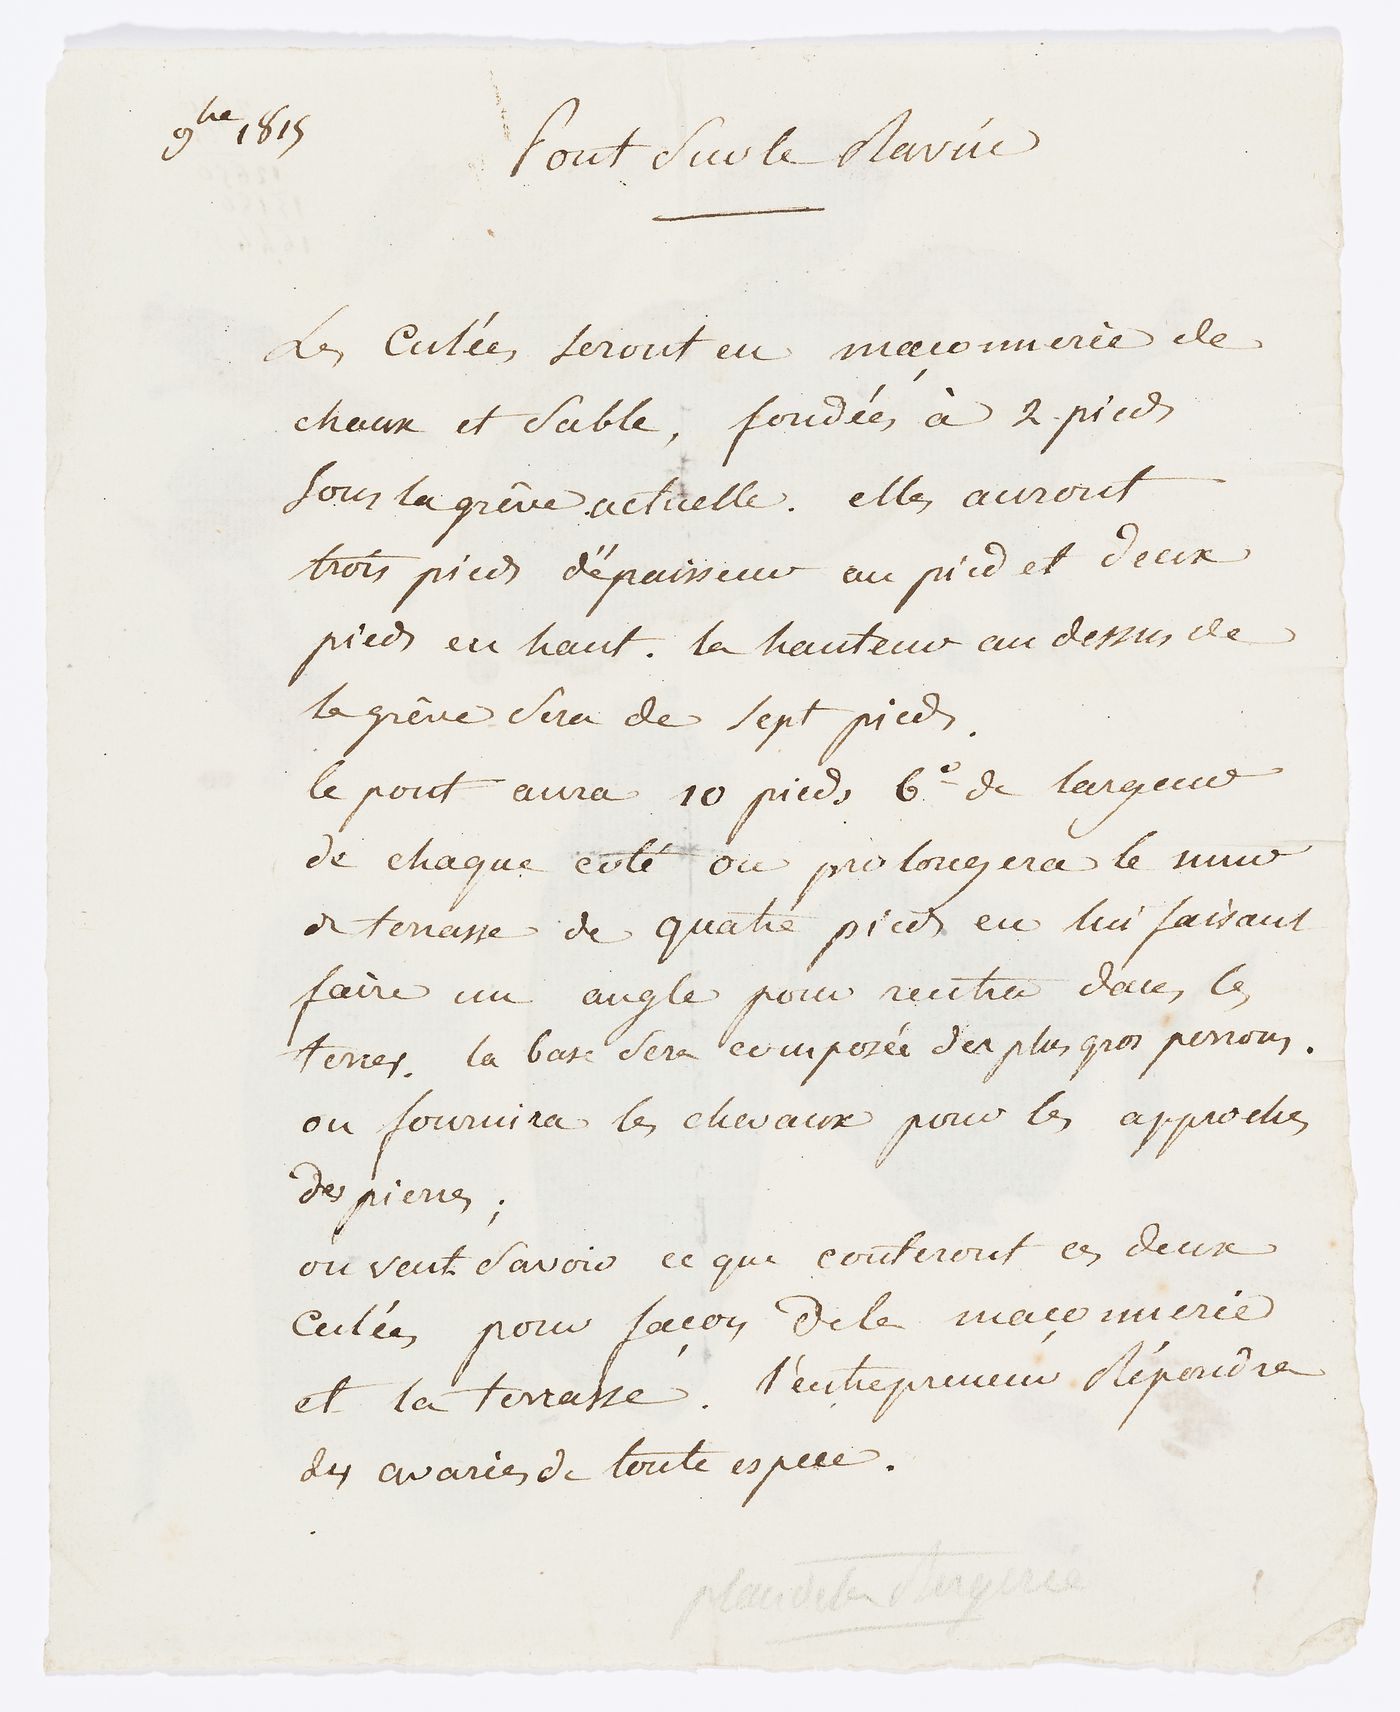 9bre 1815
Pont sur le Ravin
Les Culées seront en maçonnerie de
chaux et sable, fondées à 2 pieds
sous la grêve actuelle. elles auront
trois pieds d'épaisseur au pied et deux
pieds en haut. la hauteur au dessus de
la grêve sera de sept pieds.
le pont aura 10 pieds 6º de largeur
de chaque coté on prolongera le mur
de terrasse de quatre pieds en lui faisant
faire un angle pour rentrer dans les
terres. la base sera composée des plus gros perrons.
on fournira les chevaux pour les approches
des pierres;
on veut savoir ce que couteront ces deux
Culées pour façon de la maçonnerie
et la terrasse. l'entrepreneur Répondra
des avaries de toute espece.
plan de la Bergerie